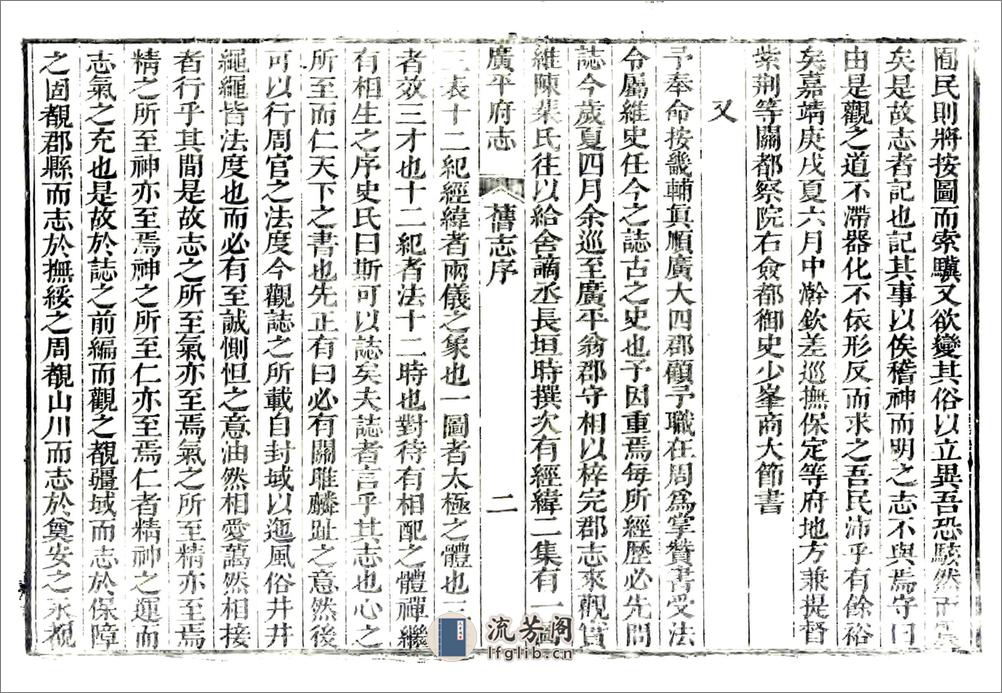 囿民則將按圖而索驥又欲變其俗以立異吾恐駭然而
矣是故志者記也記其事以俟稽神而明之志不與焉守曰
由是觀之道不滯器化不依形反而求之吾民沛乎有餘裕
矣嘉靖庚戌夏六月中澣欽差巡撫保定等府地方兼提督
紫荆等關都察院右僉都御史少峯商大節書
又
予奉命按畿輔真順廣大四郡顧予職在周爲掌贊書受法
令屬維史任今之誌古之史也予因重焉每所經歷必先問
誌今歲夏四月余巡至廣平翁郡守相以梓完郡志來觀實
維陳棐氏往以給舍謫丞長垣時撰次有經緯二集有一圖
廣平府志
舊志序
二
三表十二紀經緯者兩儀之象也一圖者太極之體也三
者效三才也十二紀者法十二時也對待有相配之體禪繼
有相生之序史氏曰斯可以誌矣夫誌者言乎其志也心之
所至而仁天下之書也先正有曰必有關雎麟趾之意然後
可以行周官之法度今觀誌之所載自封域以迄風俗井井
繩繩皆法度也而必有至誠惻怛之意油然相愛藹然相接
者行乎其間是故志之所至氣亦至焉氣之所至精亦至焉
精之所至神亦至焉神之所至仁亦至焉仁者精神之運而
志氣之充也是故於誌之前編而觀之覩疆域而志於保障
之固覩郡縣而志於撫綏之周覩山川而志於奠安之永覩
流芳阁
lfglib.cn